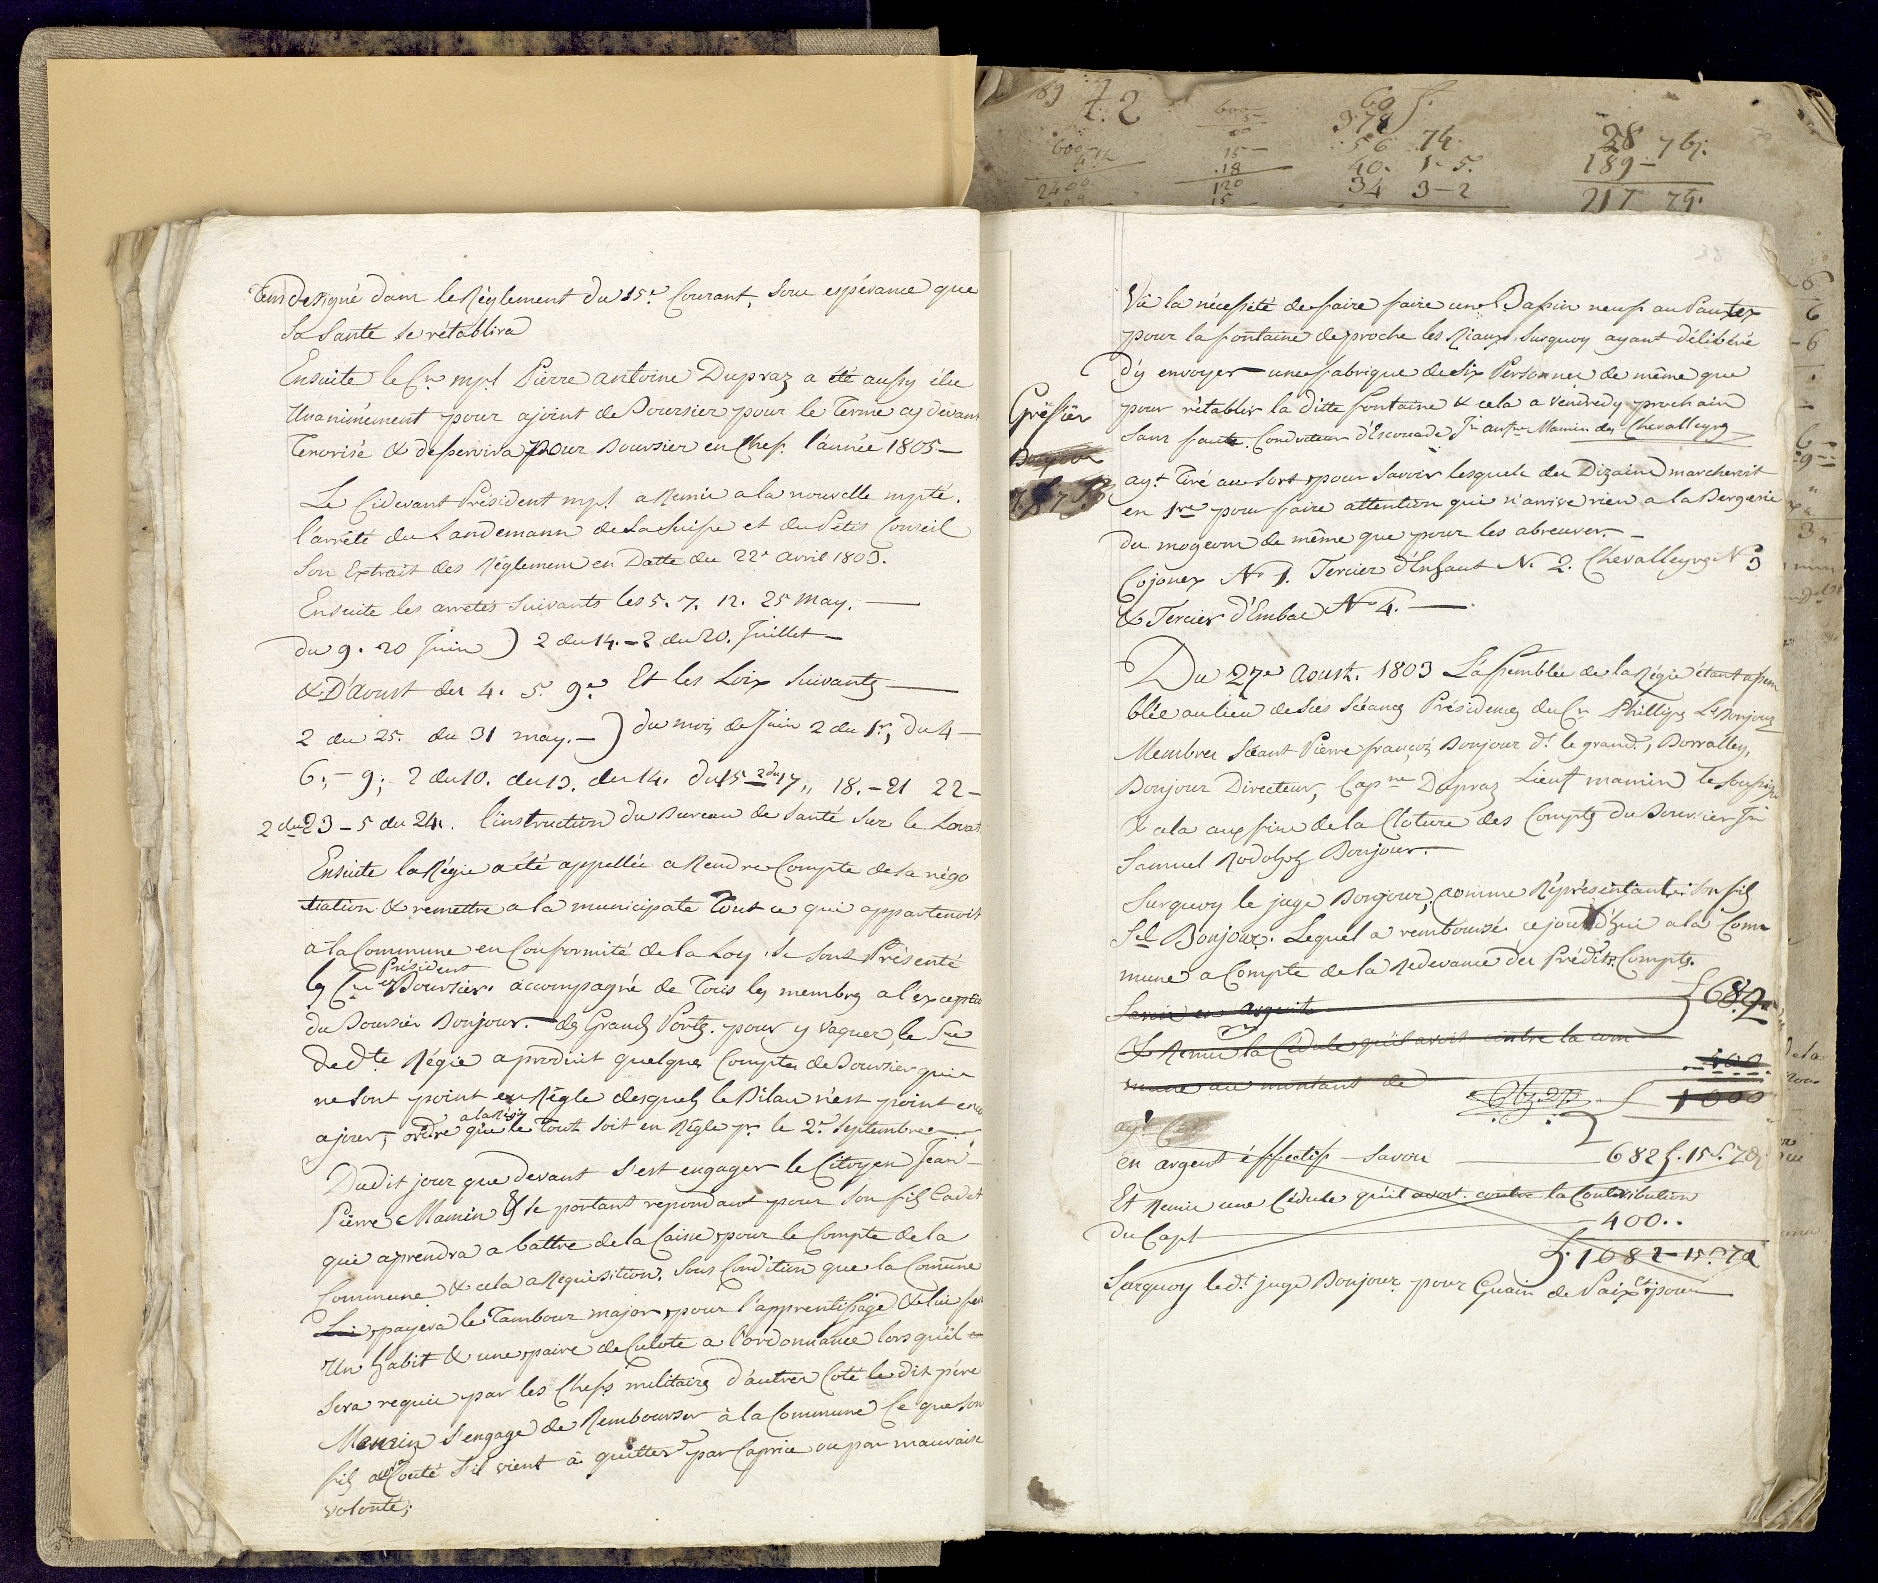 Tems designé dans le Réglement du 15e. Courant, sous espérance que
Sa Santé se rétablira
Ensuite le Cn. mpl. Pierre antoine Dupraz a été aussy élu
Unanimément pour ajoint de Boursier pour le Terme cy devant
Tenorisé & desservira pour Boursier en Chef. l'année 1805 —
Le Cidevant Président mpl. a Remis a la nouvelle mpté.
l'arrêté du Landemann de La Suisse et du Petit Conseil
Son Extrait des Réglemens en Datte du 22e avril 1803.
Ensuite les arretés Suivants les 5. 7. 12. 25 May. —
du 9. 20 Juin ) 2 du 14. – 2 du 20. Juillet —
& D'Aoust des 4. 5. 9e. Et les Loix Suivantes —
2 du 25. du 31 may. – ) du mois de Juin 2 du 1r, du 4 —
6, – 9; 2 du 10. du 13. du 14. du 15 – 2 du 17,, 18. – 21 22 –
2 du 23 – 5 du 24. l'instruction du Bureau de Santé Sur le
Ensuite la Régie a été appellée a Rendre Compte de Sa négo
tiation & remettre a la municipaté Tout ce qui appartenoit
a la Commune en Conformité de la Loy. Se sont Présenté
les Cns Président & Boursier. accompagné de Tous les membres a l'exceptio
du Boursier Bonjour. – des Grands Portz. pour y vaquer, le
de dte. Régie a produit quelques Comptes de Boursier qui
ne sont point en Règle desquels le Bilan n'est point enco
a jour, ordre a la Régie que le Tout Soit en Règle pr. le 2e Septembre —
Dudit jour que devant S'est engager le Citoyen Jean
Pierre Mamin & se portant repondant pour Son fils Cadet
qui aprendra a battre de la Caisse pour le Compte de la
Commune & cela a Requisition. Sous Condition que la Comune
Lui payera le Tambour major pour l'apprentissage & lui fera
Un habit & une paire de Culote a l'ordonnance lorsqu'il
Sera requis par les Chefs militaires d'autres Coté le dit père
Mamin S'engage de Rembourser à la Commune Ce que Son
fils aura Couté S'il vient à quitter par Caprice ou par mauvaise
volonté;
189 42
600 –
60 f.
378
56 74.
40. 1 – 5.
34 3 – 2
15 –
.18
120
15
2400
28 7 bz:
189 –
217
Vû la nécessité de faire faire un Bassin neuf au Pautex
pour la fontaine de proche les Riaux, Surquoy ayant délibéré
d'y envoyer une fabrique de Six Personnes de même que
pour rétablir la ditte fontaine & cela a Vendredy prochain
Sans faute. Conducteur d'Escouade Jn. Mamin des Chevalleyres
Gressier
ayt. Tiré au Sort pour Savoir lesquels des Dizains marcheroit
en 1re. pour faire attention qui n'arrive rien a la Bergerie
du mogeons de même que pour les abreuver. –
Cojonex No 1. Tercier d'Enhaut N. 2. Chevalleyres No 3
& Tercier d'Embas No 4. —
Du 27e Aoust. 1803 L'assemblée de la Régie étant assem
blée au lieu de Ses Séances Présidence du Cn. Phillipe Ls. Bonjour
Membres Séant Pierre françois Bonjour dt. le grand, Borralley,
Bonjour Directeur, Capne Dupraz Lieut mamin le Soussigné
& a la aux fins de la Cloture des Comptes du Boursier Jn
Samuel Rodolphe Bonjour. —
Surquoy le juge Bonjour, comme Réprésentant Son fils
Sl. Bonjour. Lequel a remboursé cejourd'hui a la Com
mune a Compte de la Redevance des Prédits Comptes.
Savoir en argent
& Remis la Cédule qu'il avoit contre la com
mune au montant de
400
1000
en argent éffectif – Savoir — 682 f. 15 s. 7 d
Et Remis une Cédule qu'il avoit contre la Contribution
du Capt — 400..
f. 1082 – 15 s. 7 d
Surquoy le dt. juge Bonjour pour Guain de Paix & pour